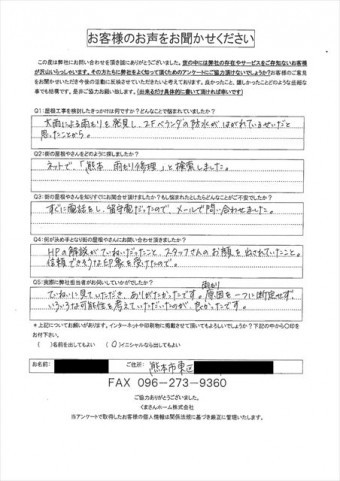 お客様のお声をお聞かせください
この度は弊社にお問い合わせを頂き誠にありがとうございました。世の中には弊社の存在やサービスをご存知ないお客様
が沢山いらっしゃいます。その方たちに弊社をよく知って頂くためのアンケートにご協力頂けないでしょうか？お客様のご意見
をお聞かせいただき今後の活動に反映させていただきたいと考えております。良かったこと、嬉しかったことどのような些細な
事でも結構です。是非ご協力お願い致します。（出来るだけ具体的に書いて頂ければ幸いです）
Q1:屋根工事を検討したきっかけは何ですか？どんなことで悩まれていましたか？
大雨による雨もりを発見し、2Fベランダの防水がはがれていませいだと
思ったことから。
Q2:街の屋根やさんをどのように探しましたか？
ネットで、「熊本　雨もり修理」と検索しました。
Q3:街の屋根やさんを知りすぐにお問合せ頂けましたか？もし悩まれたとしたらどんなことがご不安でしたか？
すぐに電話をし、留守電だったので、メールで問い合わせました。
Q4:何が決め手となり街の屋根やさんにお問い合わせ頂きましたか？
HPの解説がていねいだったこと、スタッフさんのお顔を出されていたこと。
信頼できそうな印象を受けたので。
Q5:実際に弊社担当者がお伺いしていかがでしたか？
雨もり
ていねいに見ていただき、ありがたかったです。原因を一つに断定せず、
いろいろな可能性を考えていただいたのが、良かったです。
＊上記についてお願いがあります。インターネットや印刷物に掲載させて頂いてもよろしいでしょうか？下記の中から○印を
お付下さい。
（　）名前を出してもよい　（○）イニシャルなら出してもよい
お名前:　ご住所:　熊本市東区
FAX 096-273-9360
ご協力ありがとうございました。
くまさんホーム株式会社
当アンケートで取得したお客様の個人情報は関係法規に基づき厳正に管理いたします。